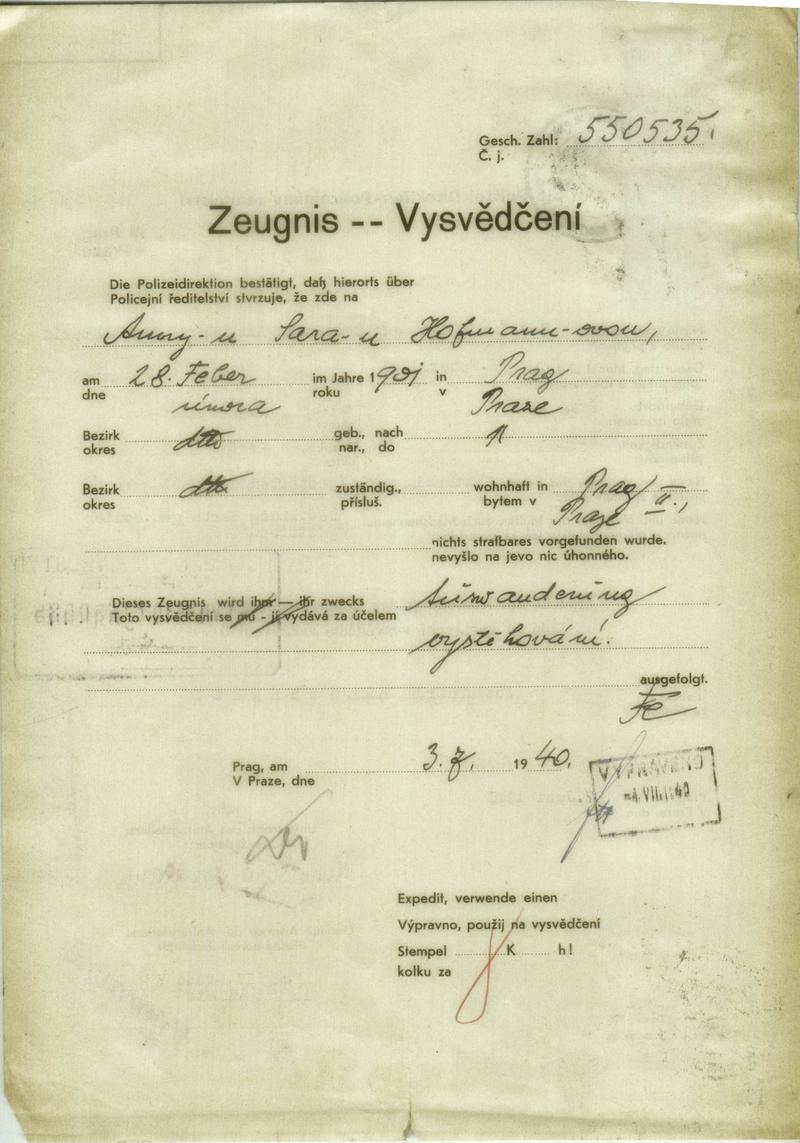 Gesch. Zahl: 550535.
Č. j.
Zeugnis -- Vysvědčení
Die Polizeidirektion bestätigt, daß hierorts über
Policejní ředitelství stvrzuje, že zde na
Anny-u Sara-u Hofmann-ovou,
am 28. Feber im Jahre 1901 in Prag
dne února roku v Praze
Bezirk dtto geb., nach "
okres nar., do
Bezirk dtto zuständig., wohnhaft in Prag II.,
okres přísluš. bytem v Praze
nichts strafbares vorgefunden wurde.
nevyšlo na jevo nic úhonného.
Dieses Zeugnis wird ihm — ihr zwecks Auswanderung
Toto vysvědčení se mu - jí vydává za účelem
vystěhování.
ausgefolgt.
Prag, am 3. 7. 1940.
V Praze, dne
VYPRAVENO
-4. VII. 1940
Expedit, verwende einen
Výpravno, použij na vysvědčení
Stempel K h!
kolku za